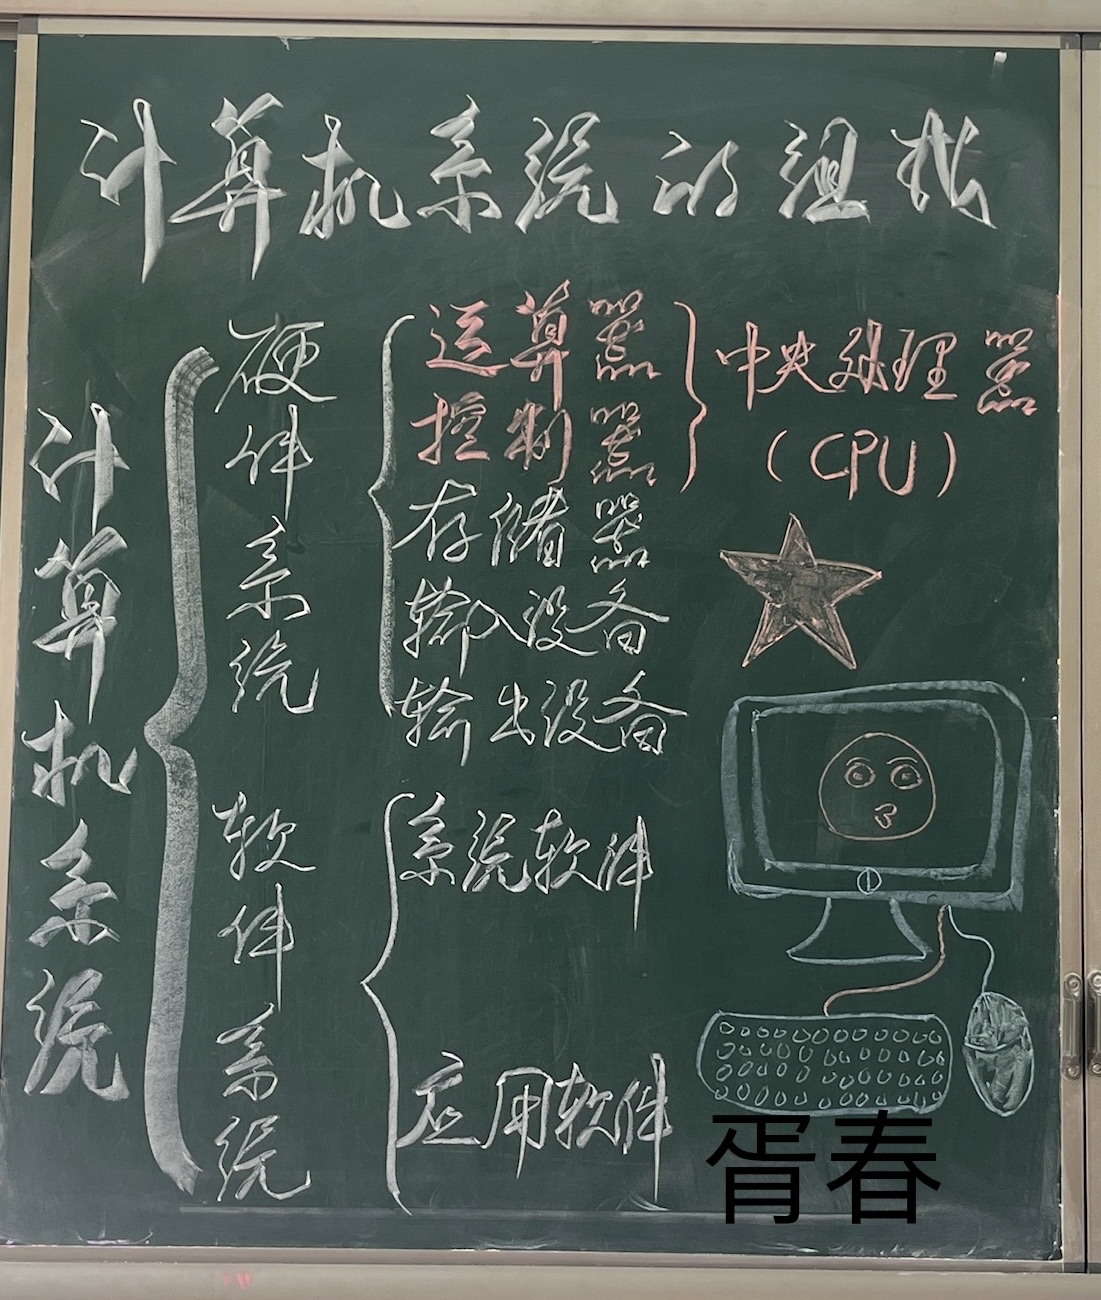 计算机系统的组成
计算机系统
硬件系统
运算器
控制器
中央处理器
(CPU)
存储器
输入设备
输出设备
软件系统
系统软件
应用软件
胥春